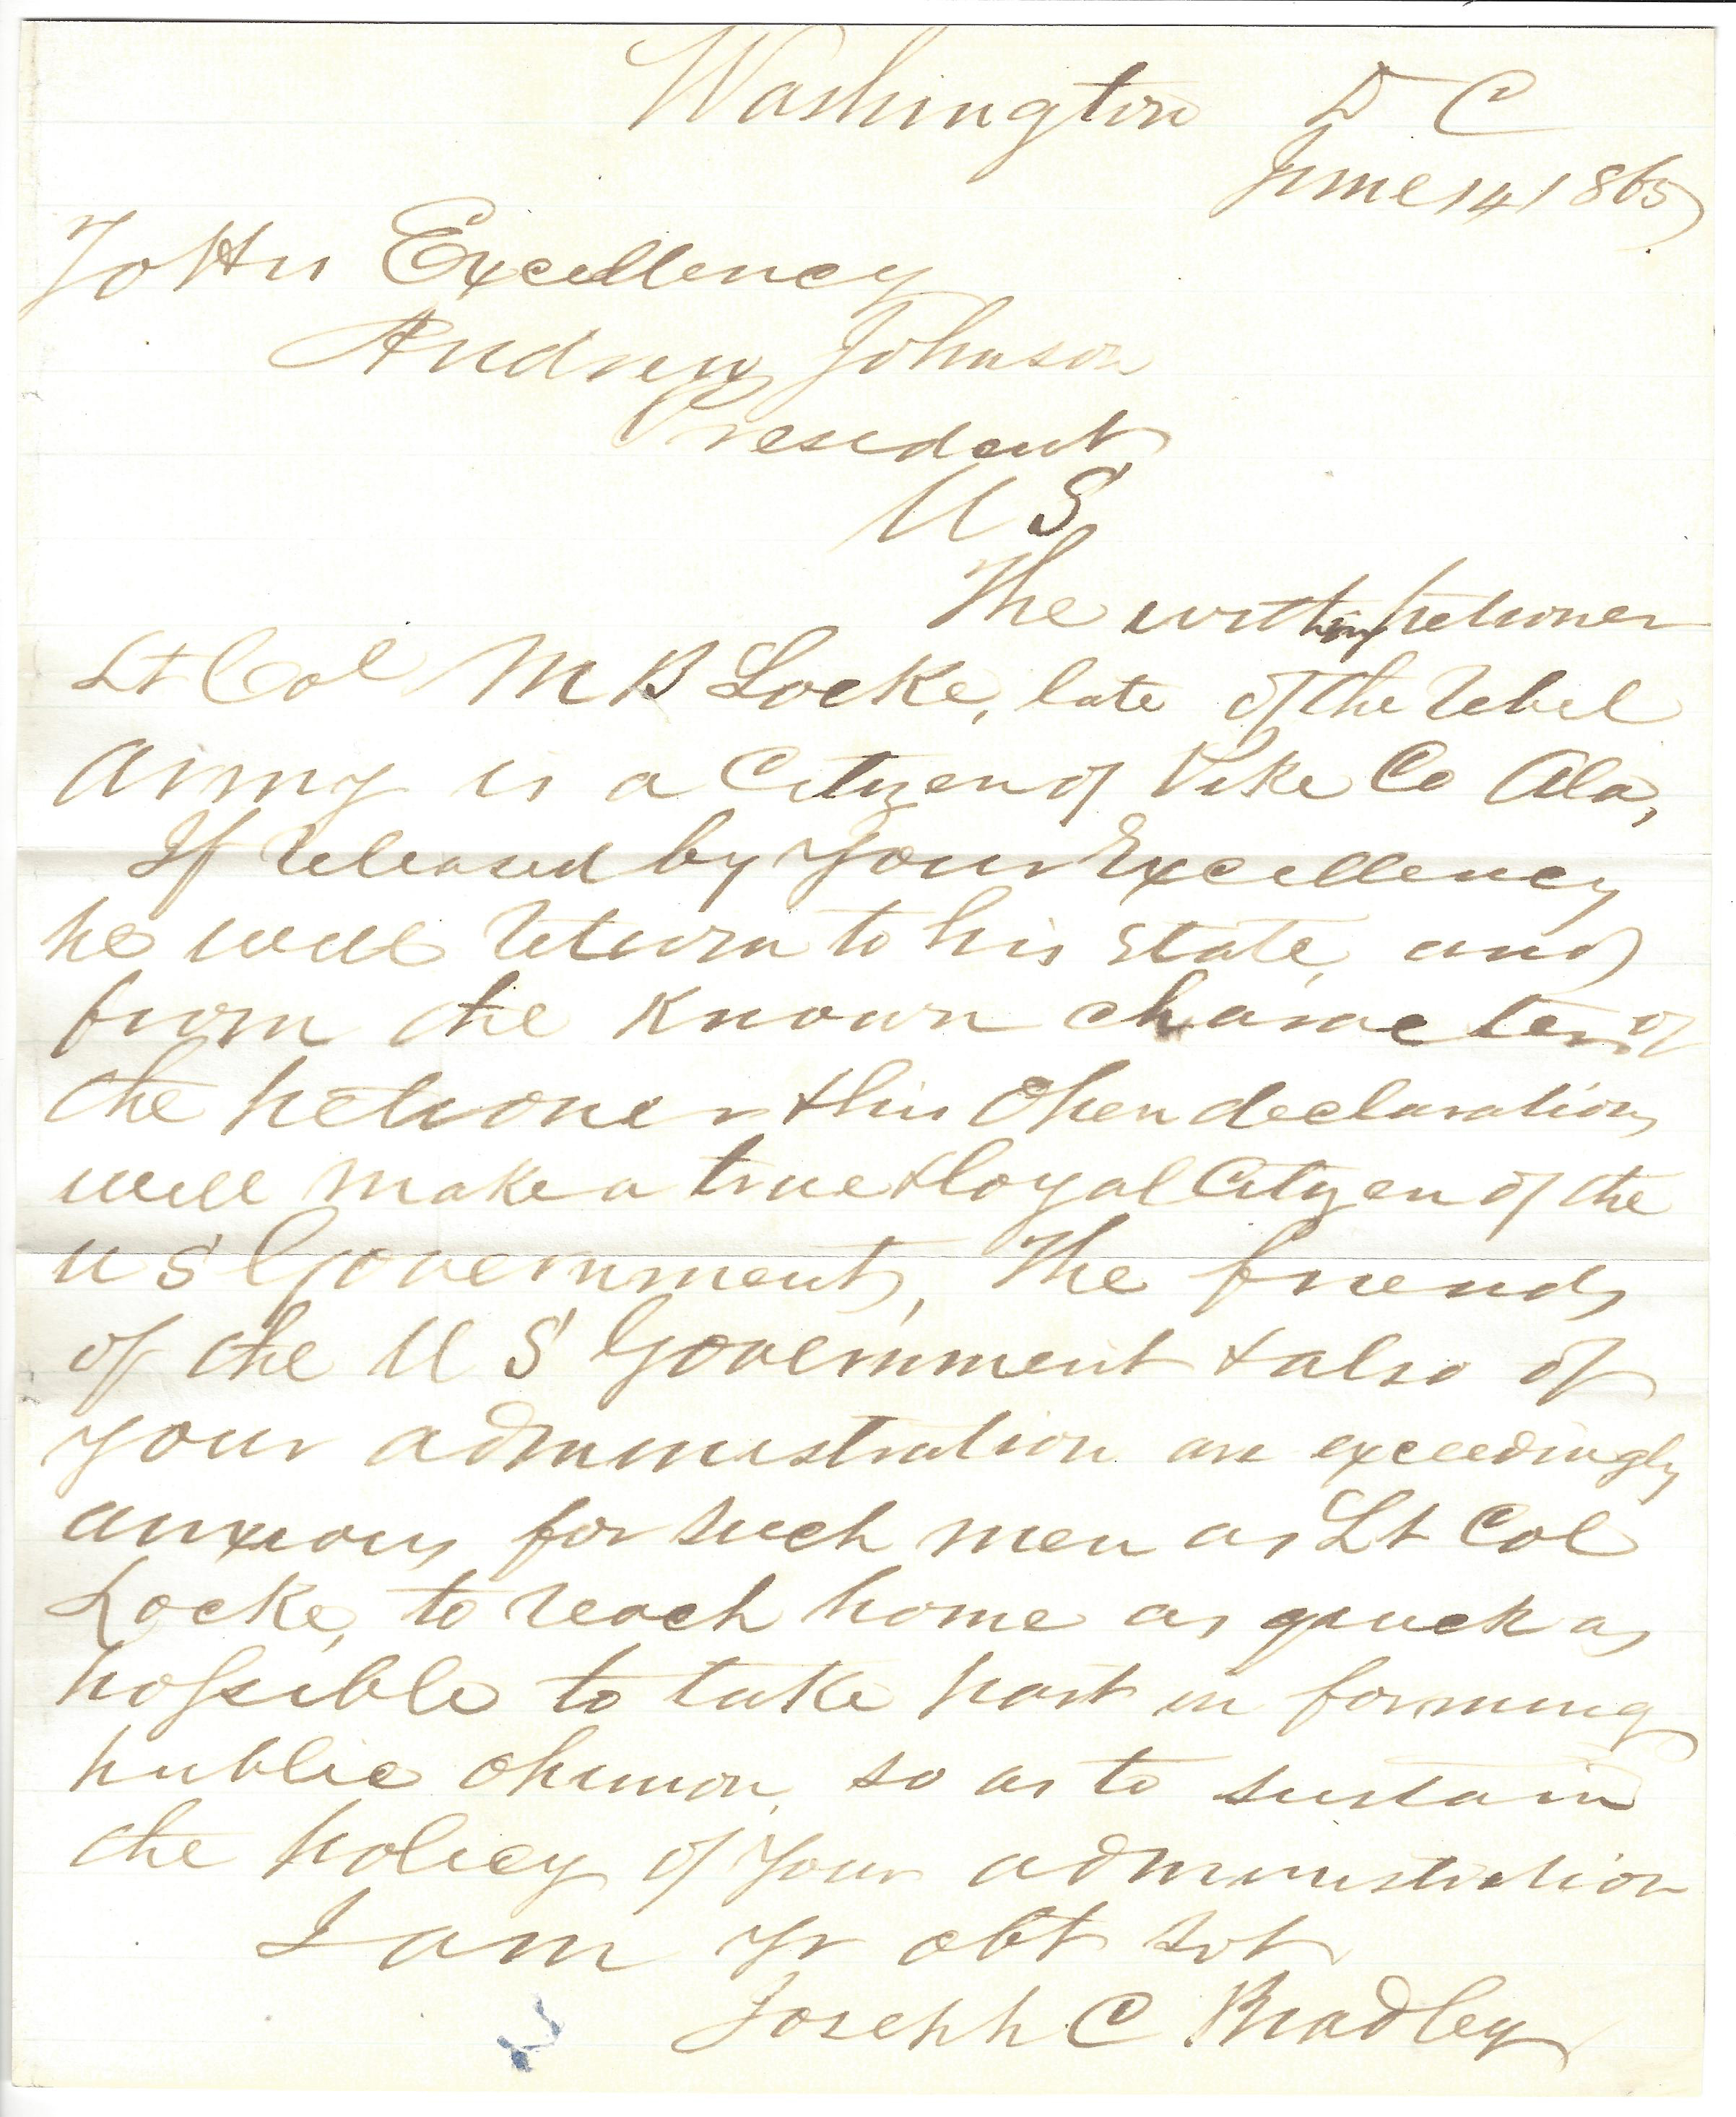 Washington D C
June 14 1865
To His Excellency
Andrew Johnson
President
U S
The within petioner
Lt Col M B Locke, late of the rebel
army is a Citizen of Pike Co Ala,
If released by your Excellency
he will return to his State, and
from the known character of
the petioner & his open declarations
will make a true & loyal Citizen of the
U S Government, The friends
of the U S Government & also of
your administration are exceedingly
anxious for such men as Lt Col
Locke, to reach home as quick as
possible to take part in forming
public opinion, so as to sustain
the policy of your administration
I am yr obt svt
Joseph C Bradley